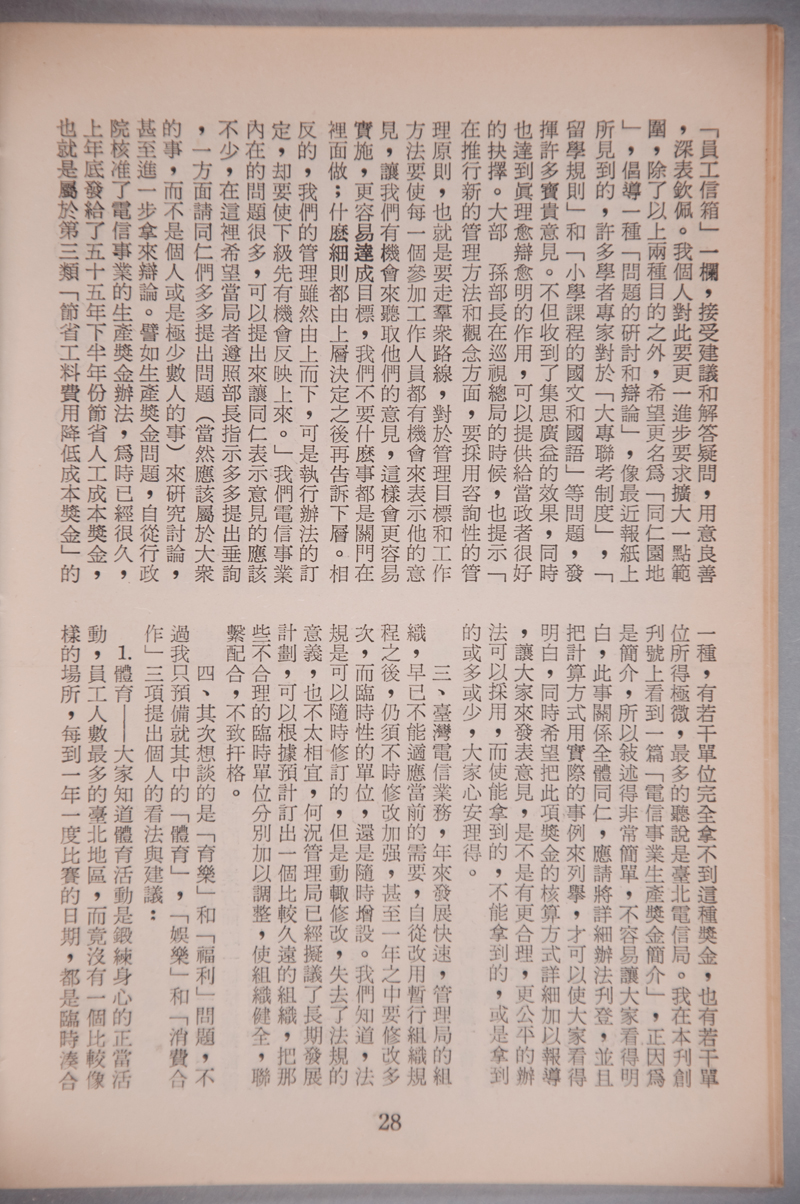 「員工信箱」一欄，接受建議和解答疑問，用意良善
，深表欽佩。我個人對此要更一進步要求擴大一點範
圍，除了以上兩種目的之外，希望更名爲「同仁園地
」，倡導一種「問題的研討和辯論」，像最近報紙上
所見到的，許多學者專家對於「大專聯考制度」，「
留學規則」和「小學課程的國文和國語」等問題，發
揮許多寶貴意見。不但收到了集思廣益的效果，同時
也達到眞理愈辯愈明的作用，可以提供給當政者很好
的抉擇。大部　孫部長在巡視總局的時候，也提示「
在推行新的管理方法和觀念方面，要採用咨詢性的管
理原則，也就是要走羣衆路線，對於管理目標和工作
方法要使每一個參加工作人員都有機會來表示他的意
見，讓我們有機會來聽取他們的意見，這樣會更容易
實施，更容易達成目標，我們不要什麼事都是關門在
裡面做；什麼細則都由上層決定之後再告訴下層。相
反的，我們的管理雖然由上而下，可是執行辦法的訂
定，却要使下級先有機會反映上來。」我們電信事業
內在的問題很多，可以提出來讓同仁表示意見的應該
不少，在這裡希望當局者遵照部長指示多多提出垂詢
，一方面請同仁們多多提出問題（當然應該屬於大衆
的事，而不是個人或是極少數人的事）來研究討論，
甚至進一步拿來辯論。譬如生產獎金問題，自從行政
院核准了電信事業的生產獎金辦法，爲時已經很久，
上年底發給了五十五年下半年份節省人工成本獎金，
也就是屬於第三類「節省工料費用降低成本獎金」的
一種，有若干單位完全拿不到這種獎金，也有若干單
位所得極微，最多的聽說是臺北電信局。我在本刋創
刋號上看到一篇「電信事業生產獎金簡介」，正因爲
是簡介，所以敍述得非常簡單，不容易讓大家看得明
白，此事關係全體同仁，應請將詳細辦法刋登，並且
把計算方式用實際的事例來列舉，才可以使大家看得
明白，同時希望把此項獎金的核算方式詳細加以報導
，讓大家來發表意見，是不是有更合理，更公平的辦
法可以採用，而使能拿到的，不能拿到的，或是拿到
的或多或少，大家心安理得。
三、臺灣電信業務，年來發展快速，管理局的組
織，早已不能適應當前的需要，自從改用暫行組織規
程之後，仍須不時修改加强，甚至一年之中要修改多
次，而臨時性的單位，還是隨時增設。我們知道，法
規是可以隨時修訂的，但是動輒修改，失去了法規的
意義，也不太相宜，何況管理局已經擬議了長期發展
計劃，可以根據預計訂出一個比較久遠的組織，把那
些不合理的臨時單位分別加以調整，使組織健全，聯
繫配合，不致扞格。
四、其次想談的是「育樂」和「福利」問題，不
過我只預備就其中的「體育」，「娛樂」和「消費合
作」三項提出個人的看法與建議：
1.體育——大家知道體育活動是鍛練身心的正當活
動，員工人數最多的臺北地區，而竟沒有一個比較像
樣的場所，每到一年一度比賽的日期，都是臨時湊合
28